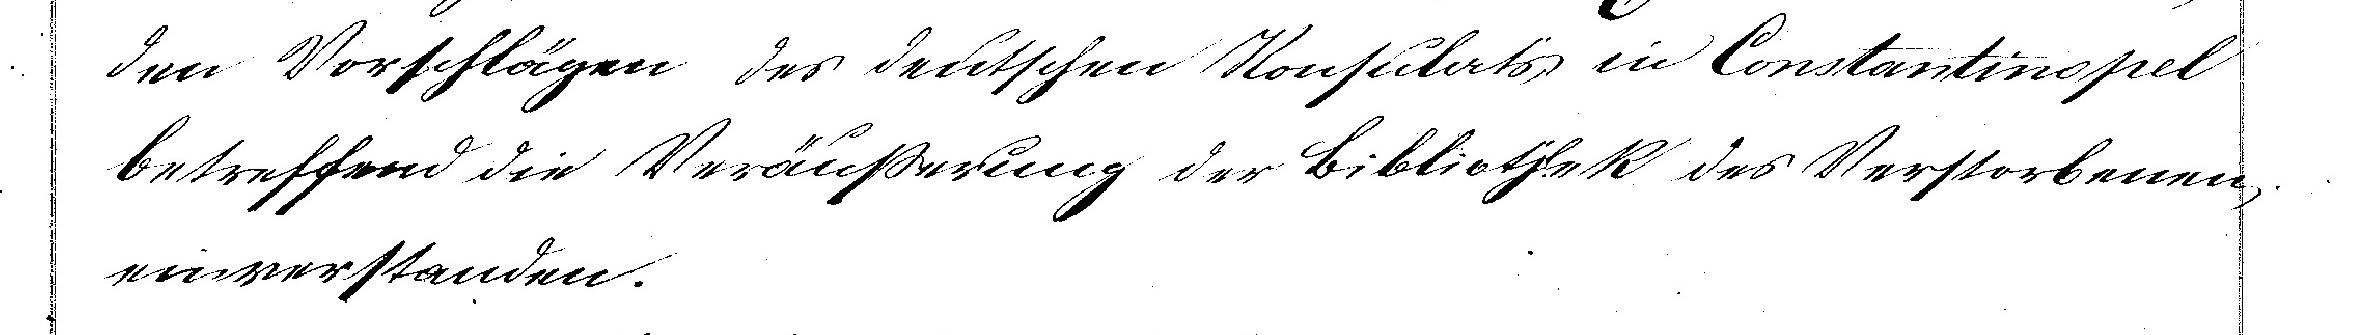 den Vorschlägen des deutschen Konsulats, in Constantinopel
betreffend die Veräußerung der Bibliothek des Verstorbenen,
einverstanden.